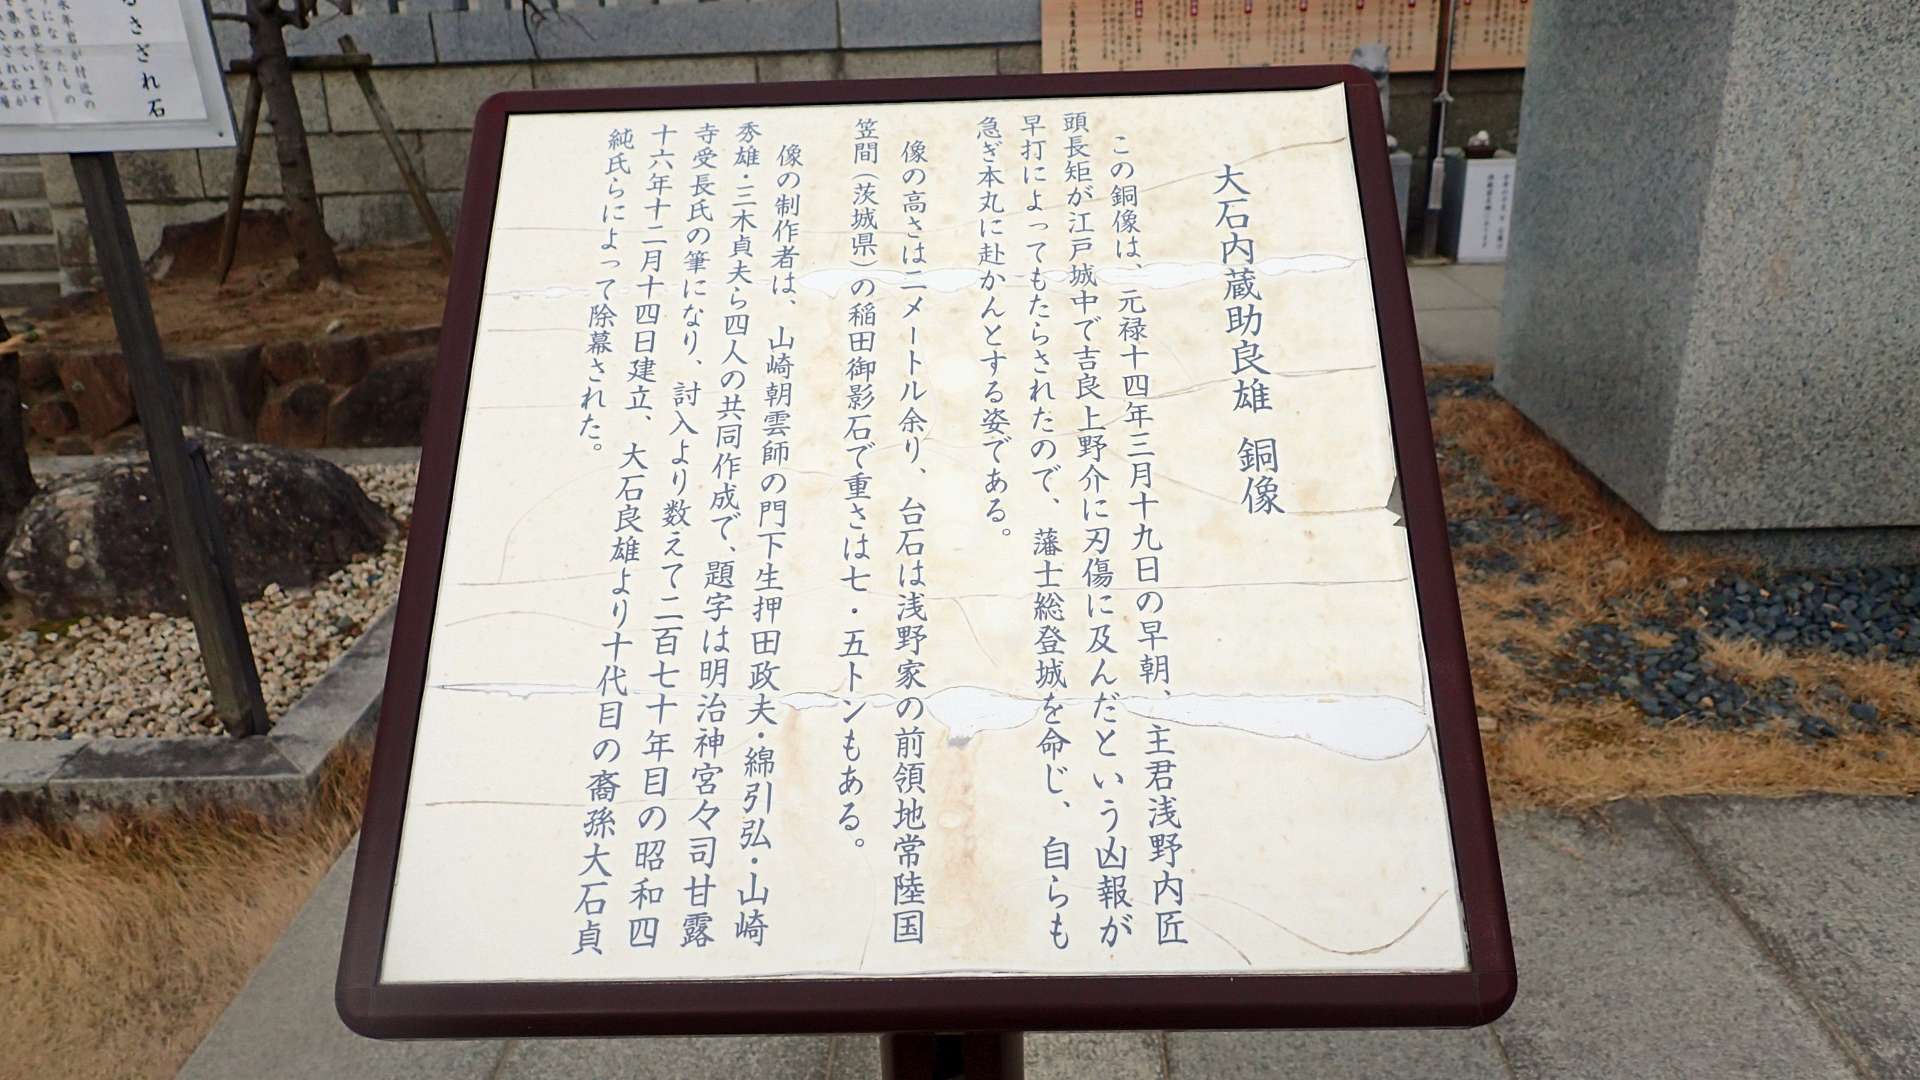 大石内蔵助良雄 銅像
この銅像は、元禄十四年三月十九日の早朝、主君浅野内匠
頭長矩が江戸城中で吉良上野介に刃傷に及んだという凶報が
早打によってもたらされたので、藩士総登城を命じ、自らも
急ぎ本丸に赴かんとする姿である。
像の高さは二メートル余り、台石は浅野家の前領地常陸国
笠間(茨城県)の稲田御影石で重さは七・五トンもある。
像の制作者は、山崎朝雲師の門下生押田政夫・綿引弘・山崎
秀雄・三木貞夫ら四人の共同作成で、題字は明治神宮々司甘露
寺受長氏の筆になり、討入より数えて二百七十年目の昭和四
十六年十二月十四日建立、大石良雄より十代目の裔孫大石貞
純氏らによって除幕された。
るさざれ石